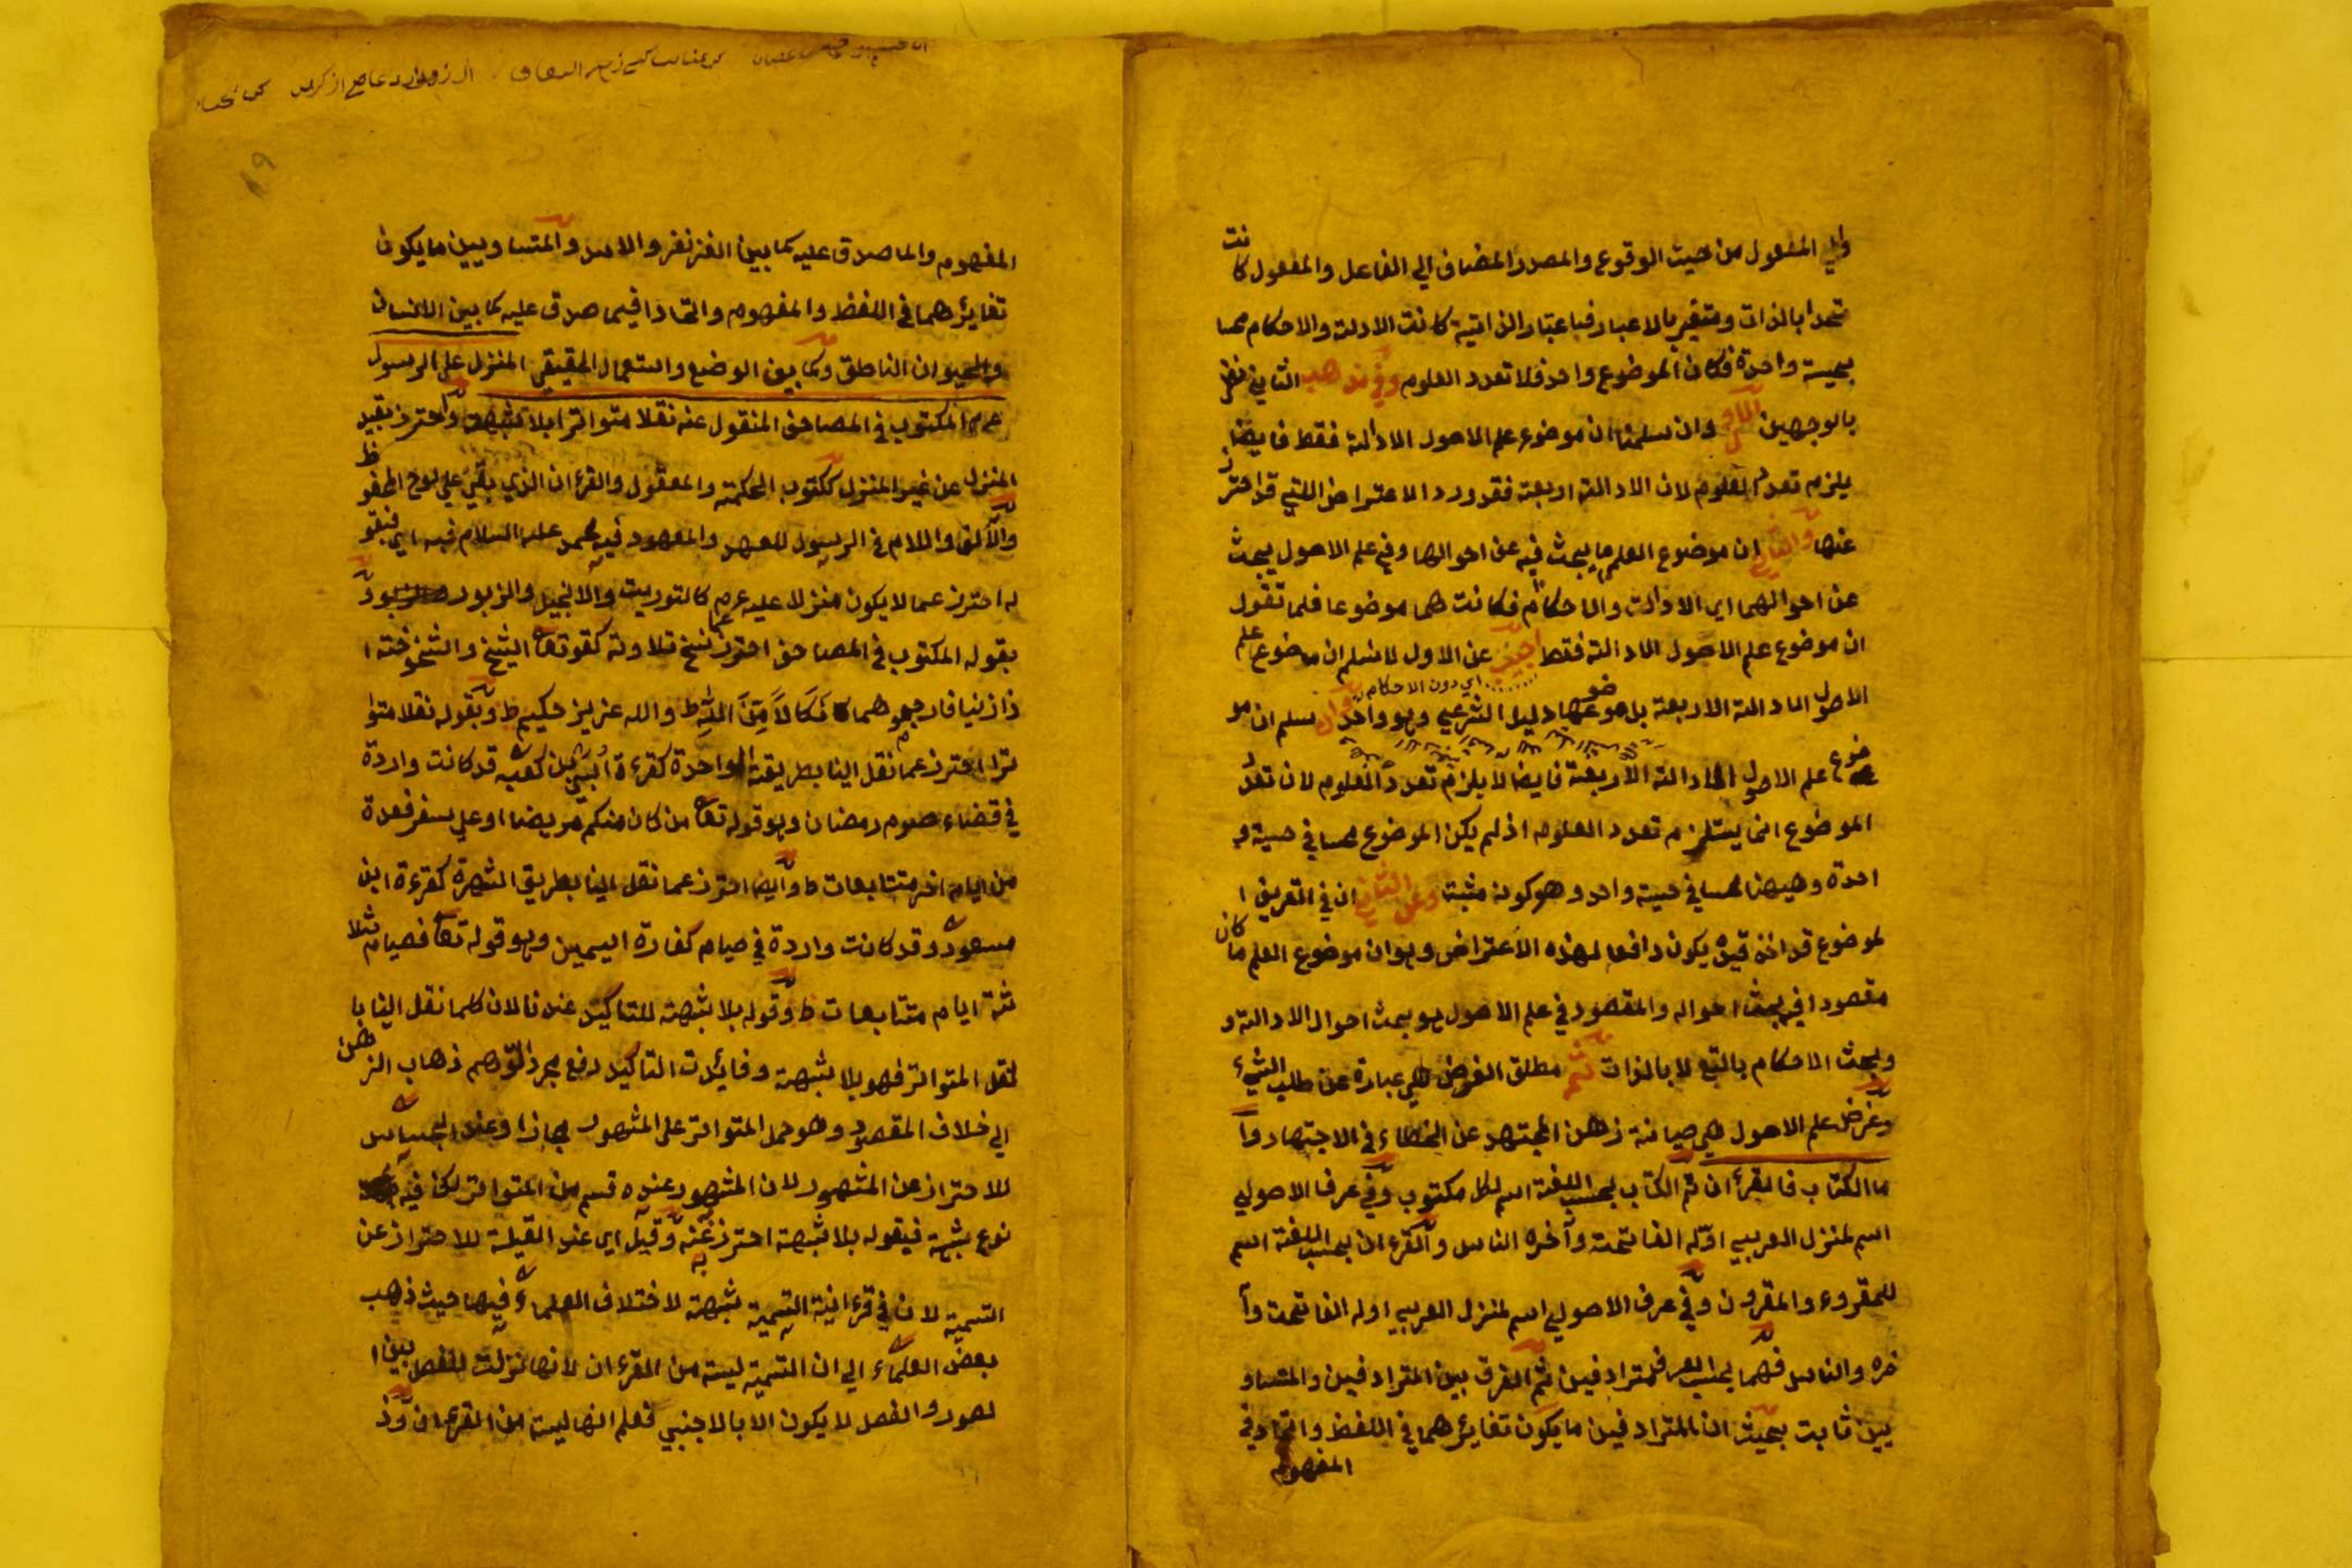 والي المفعول من حيث الوقوع والمصدر المضاف الي الفاعل والمفعول كانت
متحدا بالذات ومتغير بالاعبار فباعتبار الذاتية كانت الادلة والاحكام محسا
بحيسة واحدة فكان الموضوع واحد فلا تعدد العلوم وفي مذهب الثاني نظر
بالوجهين الاول وان سلمنا ان موضوع علم الاصول الادالة فقط فايضا
يلزم تعدد العلوم لان الادالة اربعة فقد ورد الاعتراض اللتي قد احترز
عنها والثاني ان موضوع العلم ما يبحث فيه عن احوالها وفي علم الاصول يبحث
عن احوالهما اي الادالت والاحكام فكانت هما موضوعا فلما تقول
ان موضوع علم الاصول الادالة فقط اجيب عن الاول لا نسلم ان موضوع علم
اي دون الاحكام
الاصول الادالة الاربعة بل موضوعها دليل الشرعي وهو واحد وان سلم ان مو
ضوع علم الاصول الادالة الاربعة فايضا لا يلزم تعدد العلوم لان تعدد
الموضوع انما يستلزم تعدد العلوم اذ لم يكن الموضوع محسا في حسية و
احدة وهيهنا محسا في حسية واحد وهو كونه مثبتا وعن الثاني ان في التعريف ا
لموضوع قد اخذ قيد يكون دافعا لهذه الاعتراض وهو ان موضوع العلم ما كان
مقصودا في بحث احواله والمقصود في علم الاصول هو بحث احوال الادالة و
وبحث الاحكام بالتبع لا بالذات ثم مطلق الغرض هي عبارة عن طلب الشيء
وغرض علم الاصول هي صيانة ذهن المجتهد عن الخطاء في الاجتهاد وا
ما الكتاب فالقرأن ثم الكتاب بحسب اللغة اسم لكل مكتوب وفي عرف الاصولي
اسم لمنزل العربي اوله الفاتحة وآخره الناس والقرءان بحسب اللغة اسم
للمقروء والمقرون وفي عرف الاصولي اسم لمنزل العربي اوله الفاتحت وآ
خره والناس فهما بحسب العرف مترادفين ثم الفرق بين المترادفين والمتساو
يين ثابت بحيث ان المترادفين ما يكون تغايرهما في اللفظ واتحاد في
المفهوم
١٩
المفهوم والما صدق عليه كما بين الغزنفر والاسد والمتساويين ما يكون
تغايرهما في اللفظ والمفهوم واتحادا فيما صدق عليه كما بين الانسان
والحيوان الناطق وكما بين الوضع واستعمال الحقيقي المنزل علي الرسول
عم المكتوب في المصاحف المنقول عنه نقلا متواترا بلا شبهة واحترز بقيد
المنزل عن غير المنزل ككتوب الحكمة والمعقول والقرءان الذي بقي علي لوح المحفوظ
والالف واللام في الرسول للعهد والمعهود فيه محمد عليه السلام فبه اي فبقو
له احترز عما لا يكون منزلا عليه عم كالتوريت والانجيل والزبور و
بقوله المكتوب في المصاحف احترز عما نسخ تلاوته كقوله تعا الشيخ والشيخوخة ا
ذا زنيا فارجموهما نَكَالاً مِّنَ اللّهِ ط والله عزيز حكيم ط وبقوله نقلا متوا
ترا احترز عما نقل الينا بطريقة الواحدة كقرءة اُبَيّ بن كعب قد كانت واردة
في قضاء صوم رمضان وهو قوله تعا من كان منكم مريضا او علي سفر فعدة
من ايام اخر متتابعات ط وايضا احترز عما نقل الينا بطريق الشهرة كقرءة ابن
مسعود وقد كانت واردة في صيام كفارة اليمين وهو قوله تعا فصيام ثلا
ثة ايام متتابعات ط وقوله بلا شبهة للتاكيد عندنا لان كلما نقل الينا با
لنقل المتواتر فهو بلا شبهة وفائدت التاكيد دفع مجرد التوهم ذهاب الذهن
الي خلاف المقصود وهو حمل المتواتر علي المشهور مجازا وعند الجساس
للاحتراز عن المشهور لان المشهور عنده قسم من المتواتر لكن فيه
نوع شبهة فبقوله بلا شبهة احترز عنه وقيل اي عند القيلة للاحتراز عن
التسمية لان في قرءانية التسمية شبهة لاختلاف العلماء فيها حيث ذهب
بعض العلماء الي ان التسمية ليسة من القرءان لانها نزلت للفصل بين ا
لصور والفصل لا يكون الا بالاجنبي فعلم انها ليسة من القرءان وذ